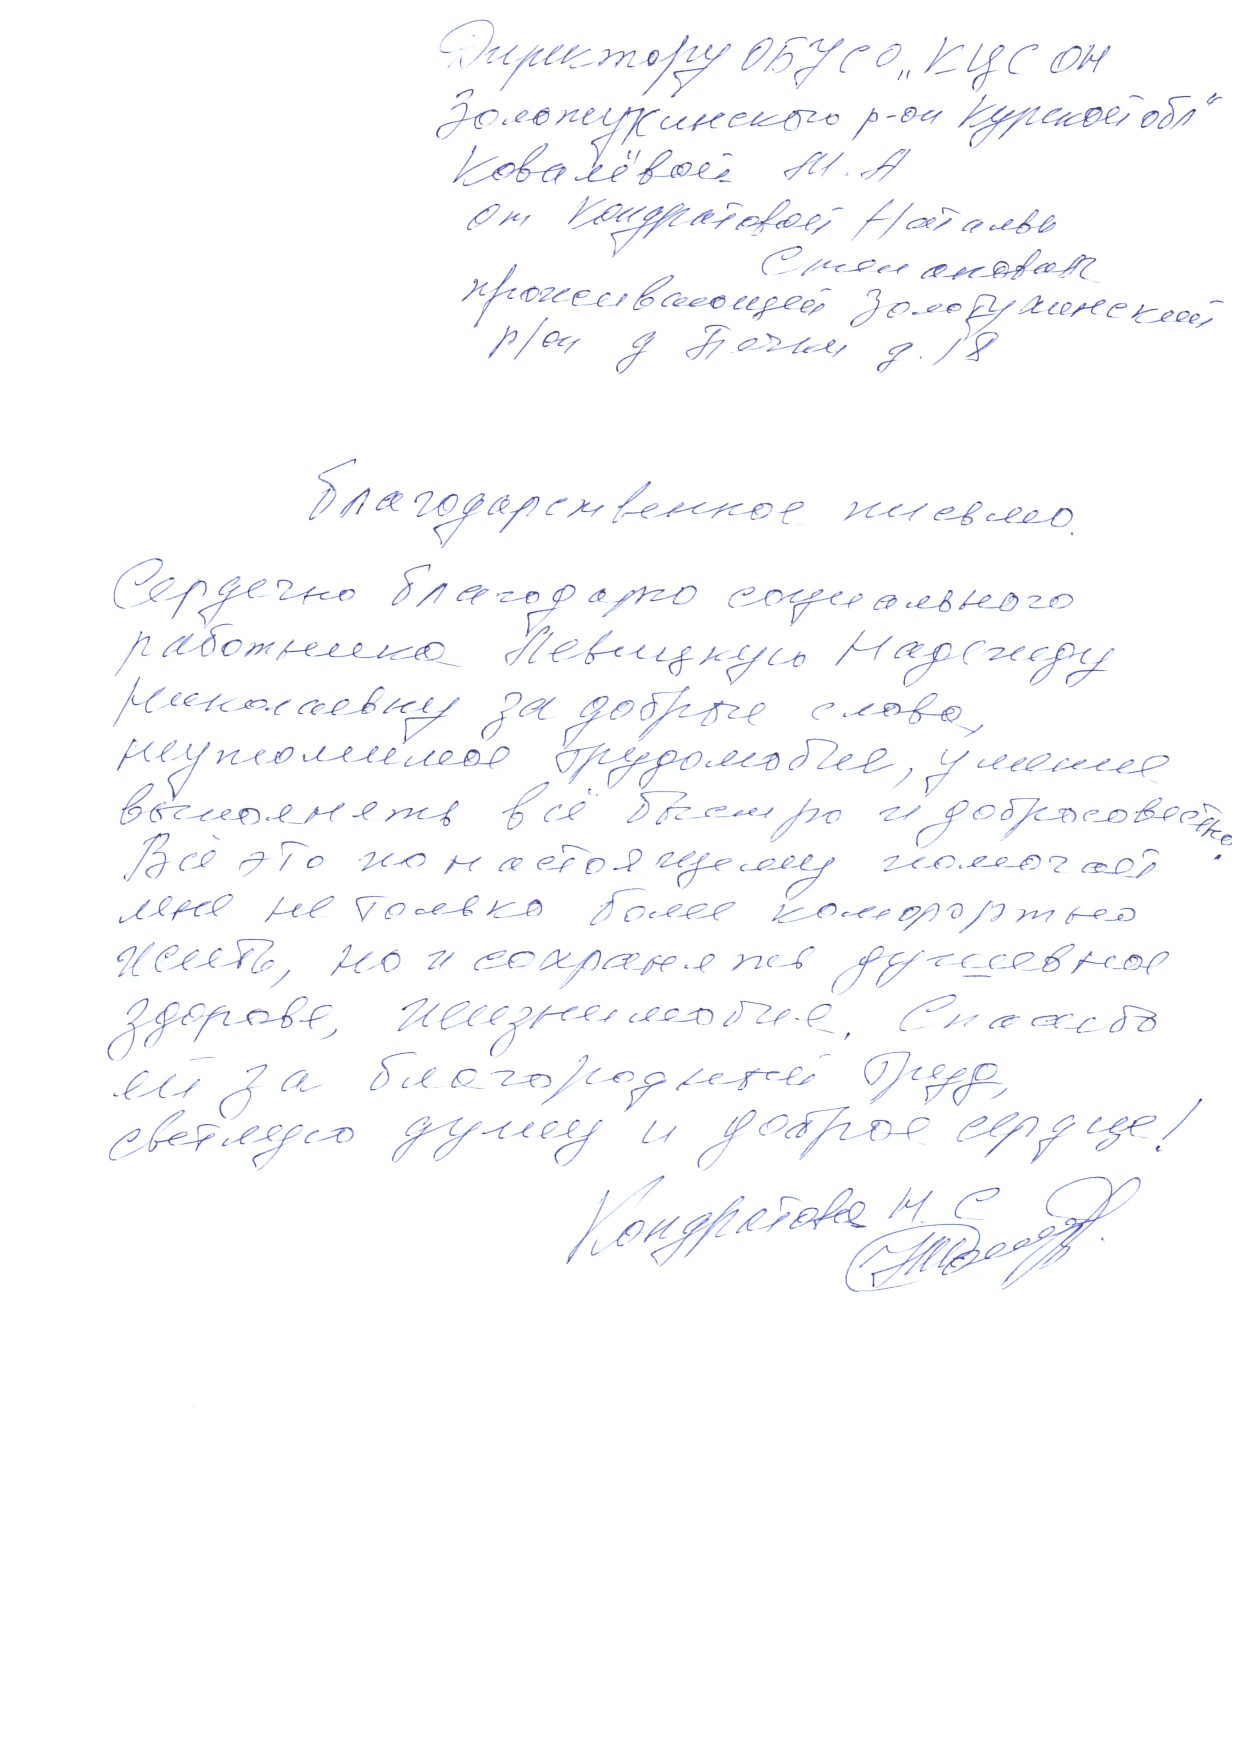 Директору ОБУСО „КЦСОН
Золотухинского р-он Курской обл“
Ковалёвой М.А
от Кондратовой Натальи
Степановы
проживающей Золотухинский
р/он д Почки д. 18
Благодарственное письмо.
Сердечно благодарю социального
работника Левицкую Надежду
Николаевну за добрые слова,
неутомимое трудолюбие, умение
выполнять всё быстро и добросовестно.
Всё это по настоящему помогает
мне не только более комфортно
жить, но и сохранять душевное
здоровье, жизнелюбие. Спасибо
ей за благородный труд,
светлую душу и доброе сердце!
Кондратова Н. С